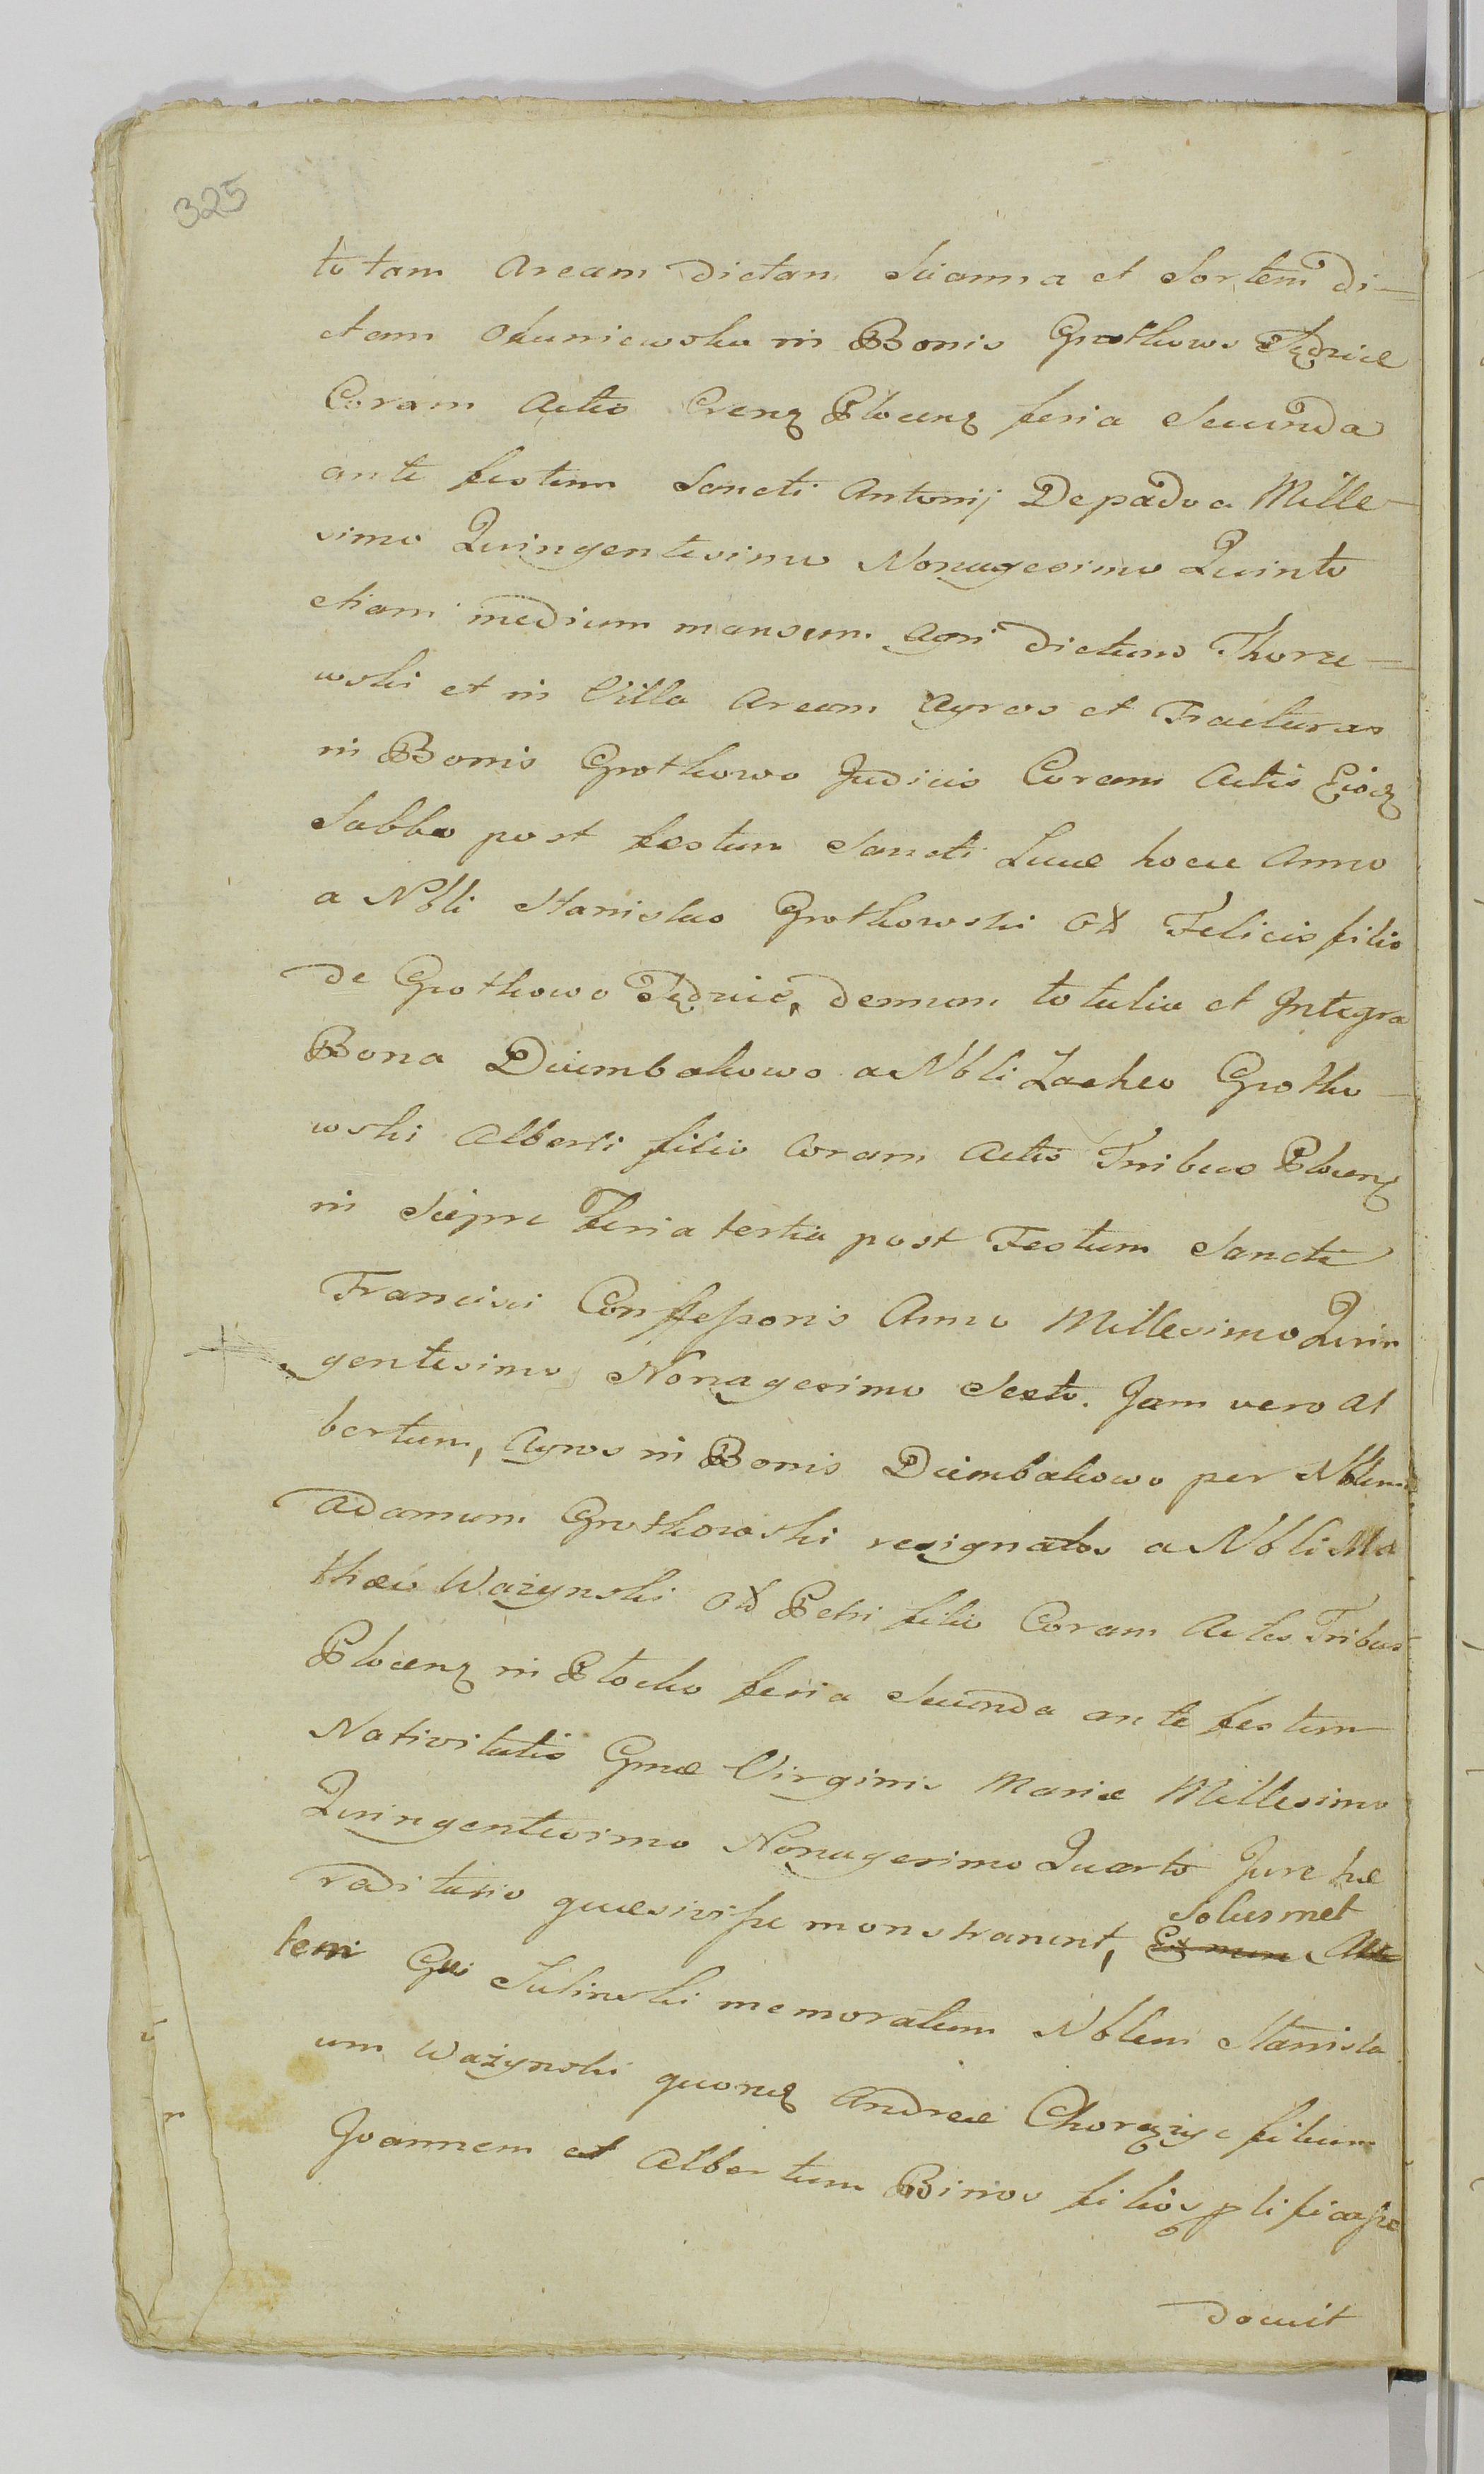 325
totam Aream dictam Scianna et Sortem di-
ctam Okuniewska in Bonis Grotkowo Jędrice
Coram Actis Crenz Plocenz feria Secunda
ante festum Sancti Antonij De padva Mille-
simo Quingentesimo Nonagesimo Quinto
etiam medium mansum Agri dictum Thorze-
wski et in Villa Aream Agros et Fracturas
in Bonis Grotkowo Judicis Coram Actis Eiodz
Sabbo post festum Sancti Lucæ hocce Anno
a Nbli Stanislao Grotkowski Old Felicis filio
de Grotkowo Jędrice, demum totalia et Integra
Bona Dziembakowo a Nbli Zacheo Grotko-
wski Alberti filio Coram Actis Tribus Plocenz
in Sciepre feria tertia post Festum Sancti
Francisci Confessoris Anno Millesimo Quin
gentesimo Nonagesimo Sexto. Jam vero Al
bertum, Agros in Bonis Dziembakowo per Nblem
Adamum Grotkowski resignatos a Nbli Ma
thæo Wazynski Old Petri filio Coram Actis Tribus
Plocenz in Plocko feria Secunda ante festum
Nativitatis Gmæ Virginis Mariæ Millesimo
Quingentesimo Nonagesimo Quarto Jure hæ
reditario quæsivisse monstrarunt, Solusmet
Gsi Sulinski memoratum Nblem Stanisla
umWażynski quonz Andreæ Chorąży filium
Joannem et Albertum Binos filios plificasse
docuit